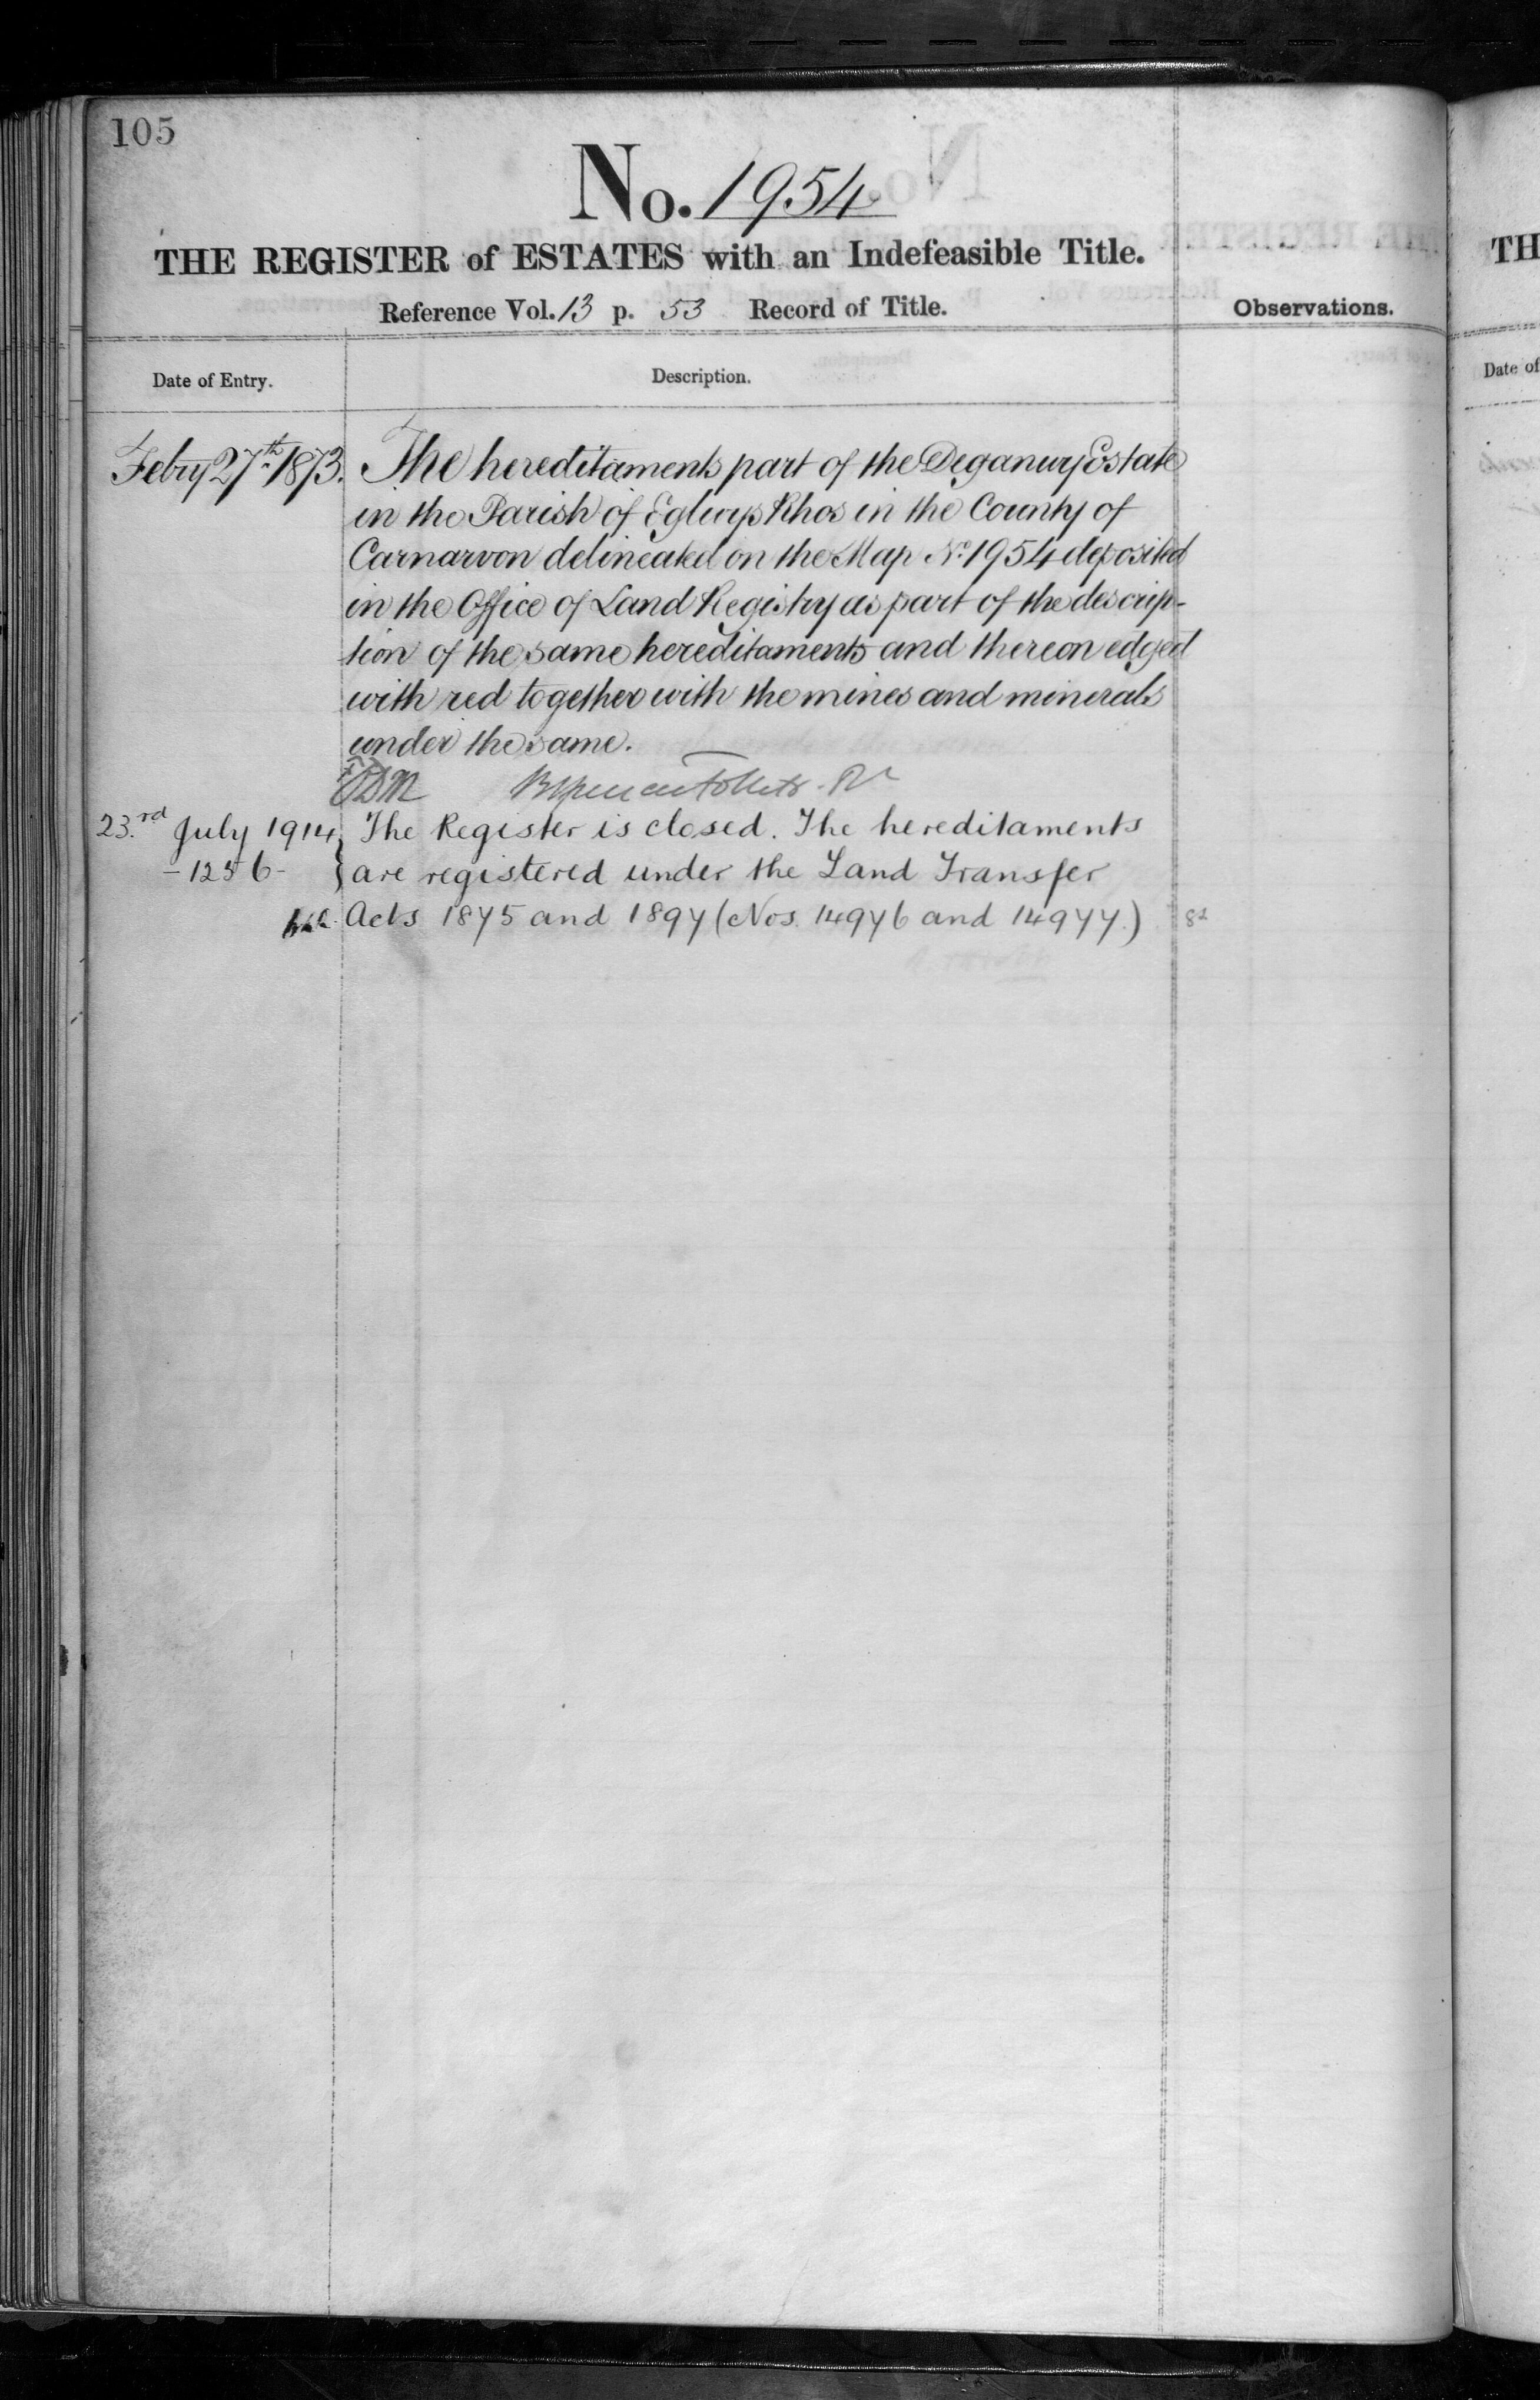 105
No. 1954
THE REGISTER of ESTATES with an Indefeasible Title.
Reference Vol. 13 p. 53 Record of Title.
Observations.
Date of Entry.
Description.
Febry 27th 1873.
The hereditaments part of the Deganwy Estate
in the Parish of Eglwys Rhos in the County of
Carnarvon delineated on the Map No. 1954 deposited
in the Office of Land Registry as part of the descrip-
tion of the same hereditaments and thereon edged
with red together with the mines and minerals
under the same.
23.rd July 1914
The Register is closed. The hereditaments
- 1256 -
are registered under the Land Transfer
Acts 1875 and 1897 (Nos. 14976 and 14977.)
TH
Date of